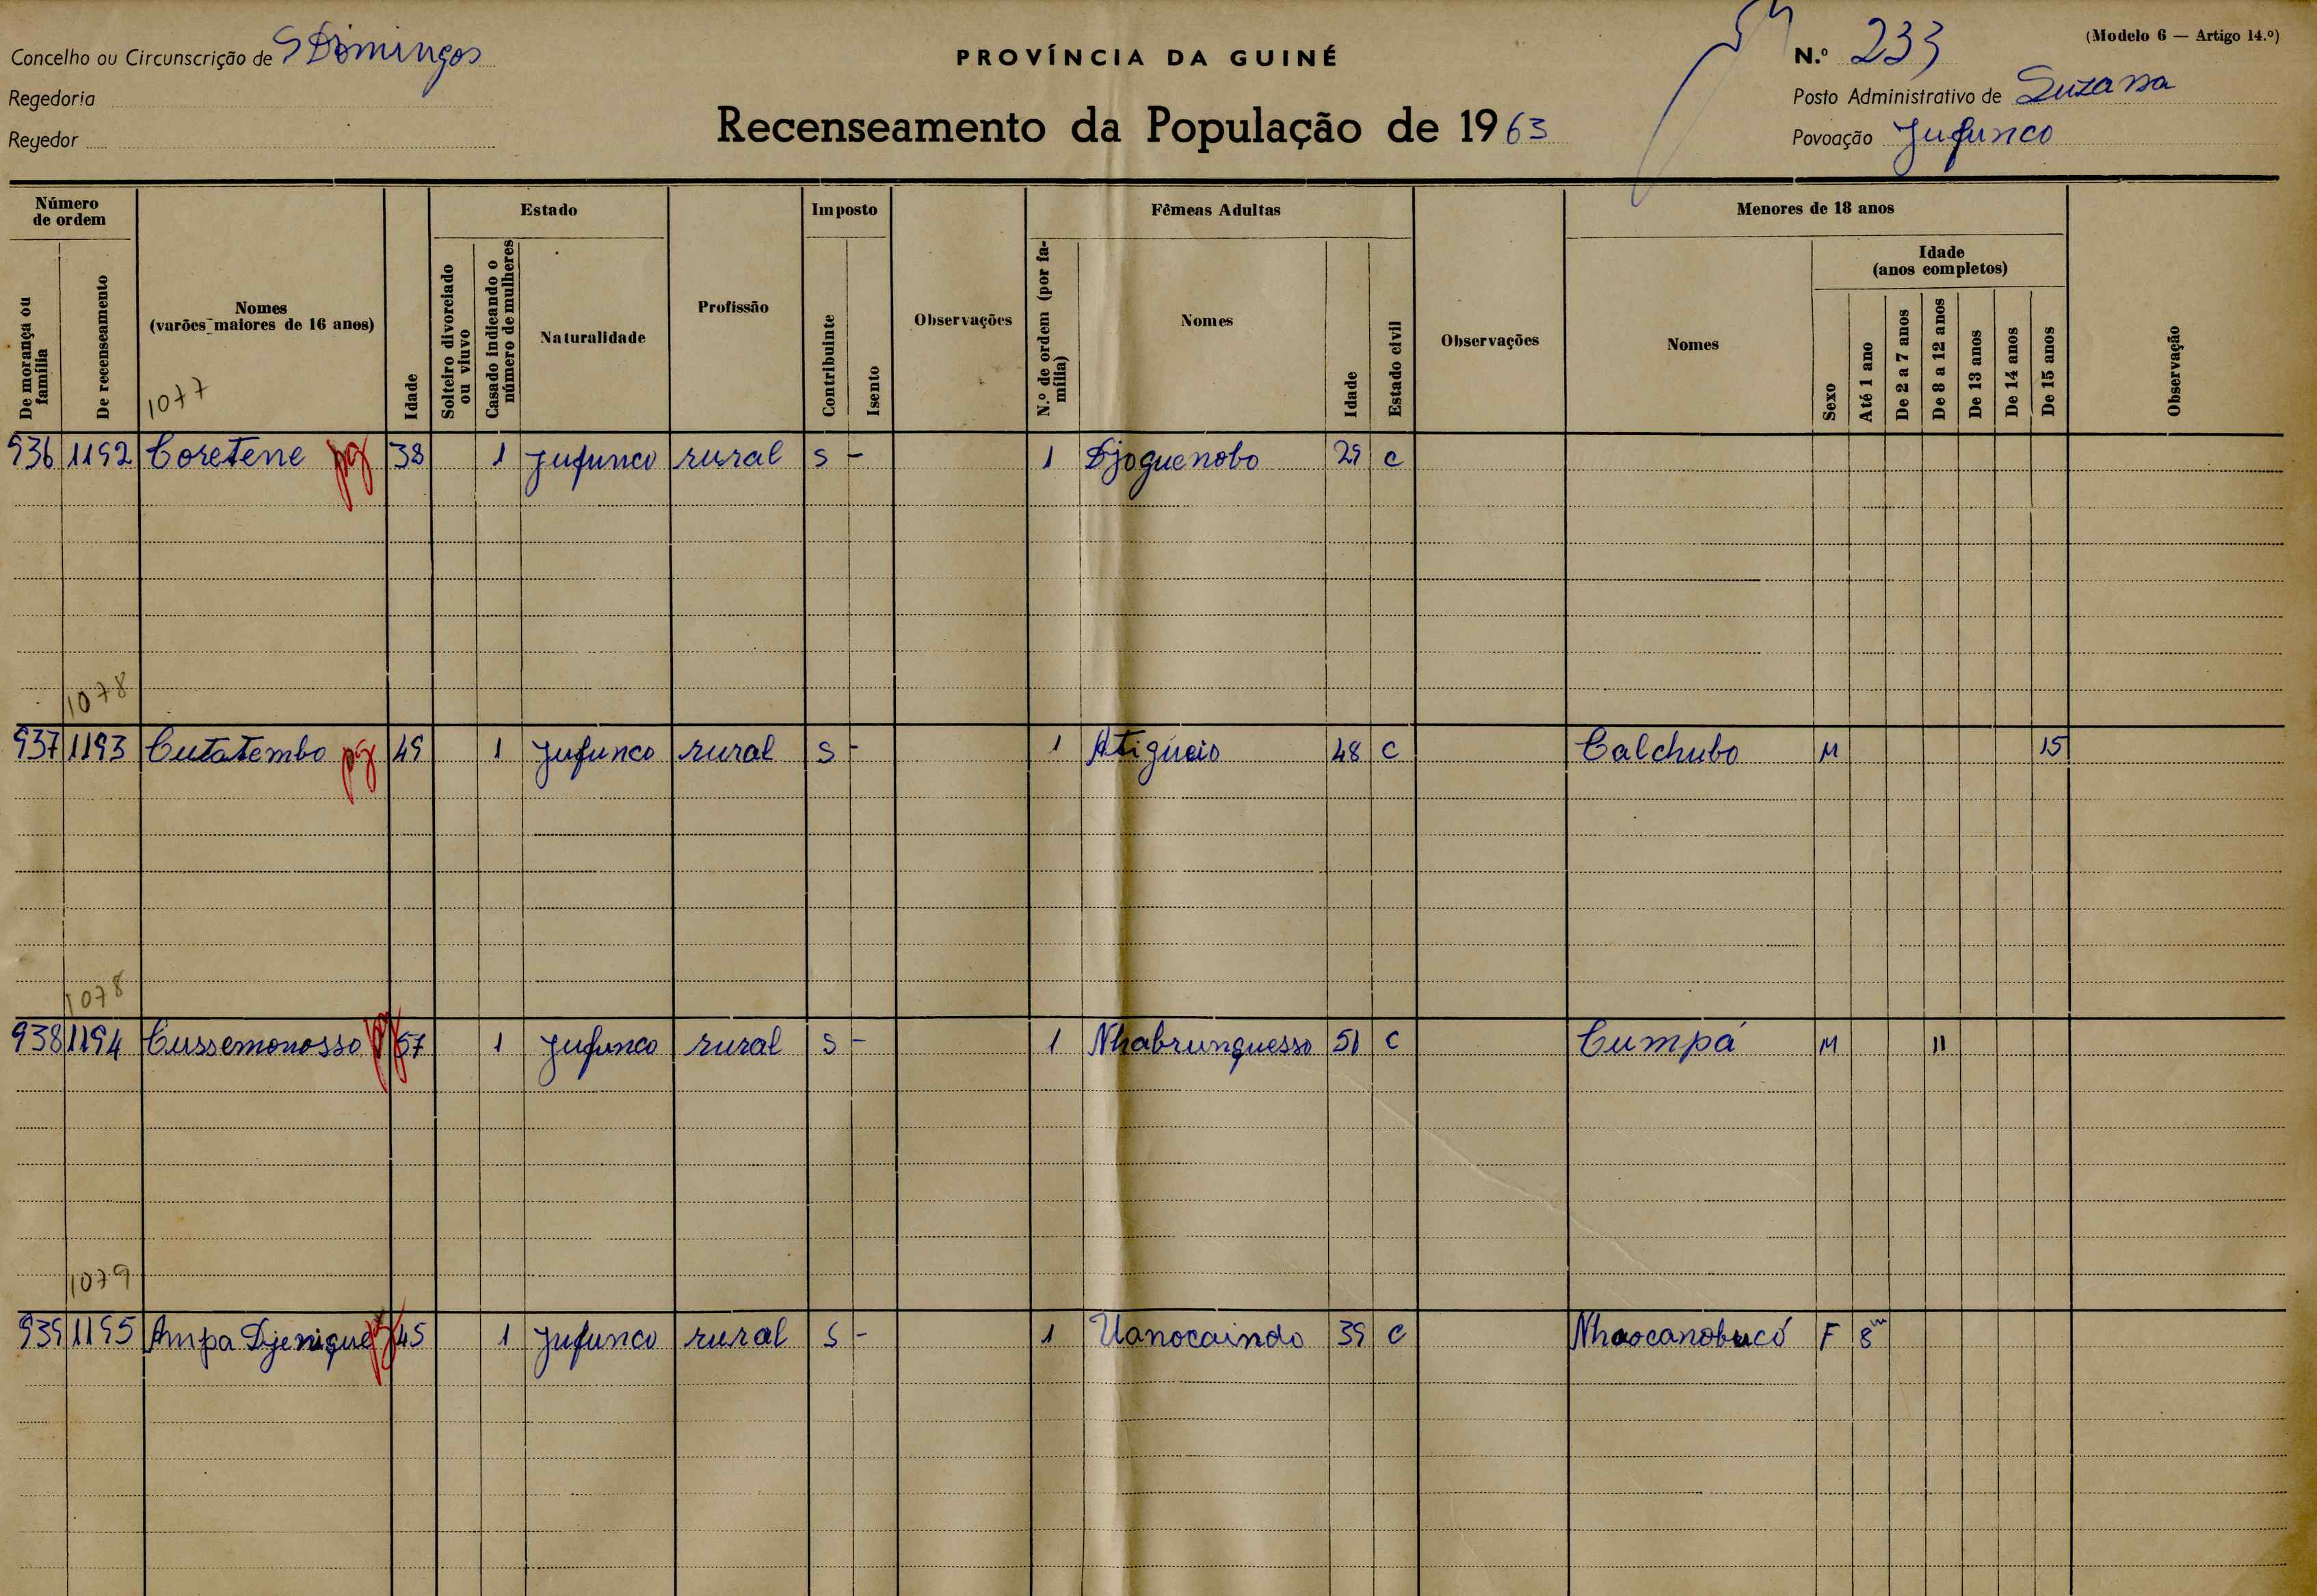 Concelho ou Circunscrição de S Domingos
Regedoria
Regedor
PROVÍNCIA DA GUINÉ
Recenseamento da População de 1963
(Modelo 6 — Artigo 14.º)
N.º 233
Posto Administrativo de Suzana
Povoação Jufunco
Número de ordem
De morança ou família
De recenseamento
Nomes
(varões maiores de 16 anos)
1077
Idade
Estado
Solteiro divorciado ou viuvo
Casado indicando o número de mulheres
Naturalidade
Profissão
Imposto
Contribuinte
Isento
Observações
Fêmeas Adultas
N.º de ordem (por família)
Nomes
Idade
Estado civil
Observações
Menores de 18 anos
Nomes
Sexo
Idade
(anos completos)
Até 1 ano
De 2 a 7 anos
De 8 a 12 anos
De 13 anos
De 14 anos
De 15 anos
Observação
936 1192 Coretene pg 38 1 Jufunco rural s - 1 Djoguenobo 29 c
1078
937 1193 Cutatembo pg 49 1 Jufunco rural s - 1 Atigueio 48 c Calchubo M 15
1078
938 1194 Cussemonosso pg 57 1 Jufunco rural s - 1 Nhabrunguesso 51 c Cumpá M 11
1079
939 1195 Ampa Djenique pg 45 1 Jufunco rural s - 1 Uanocaindo 39 c Nhaocanobucó F 8m